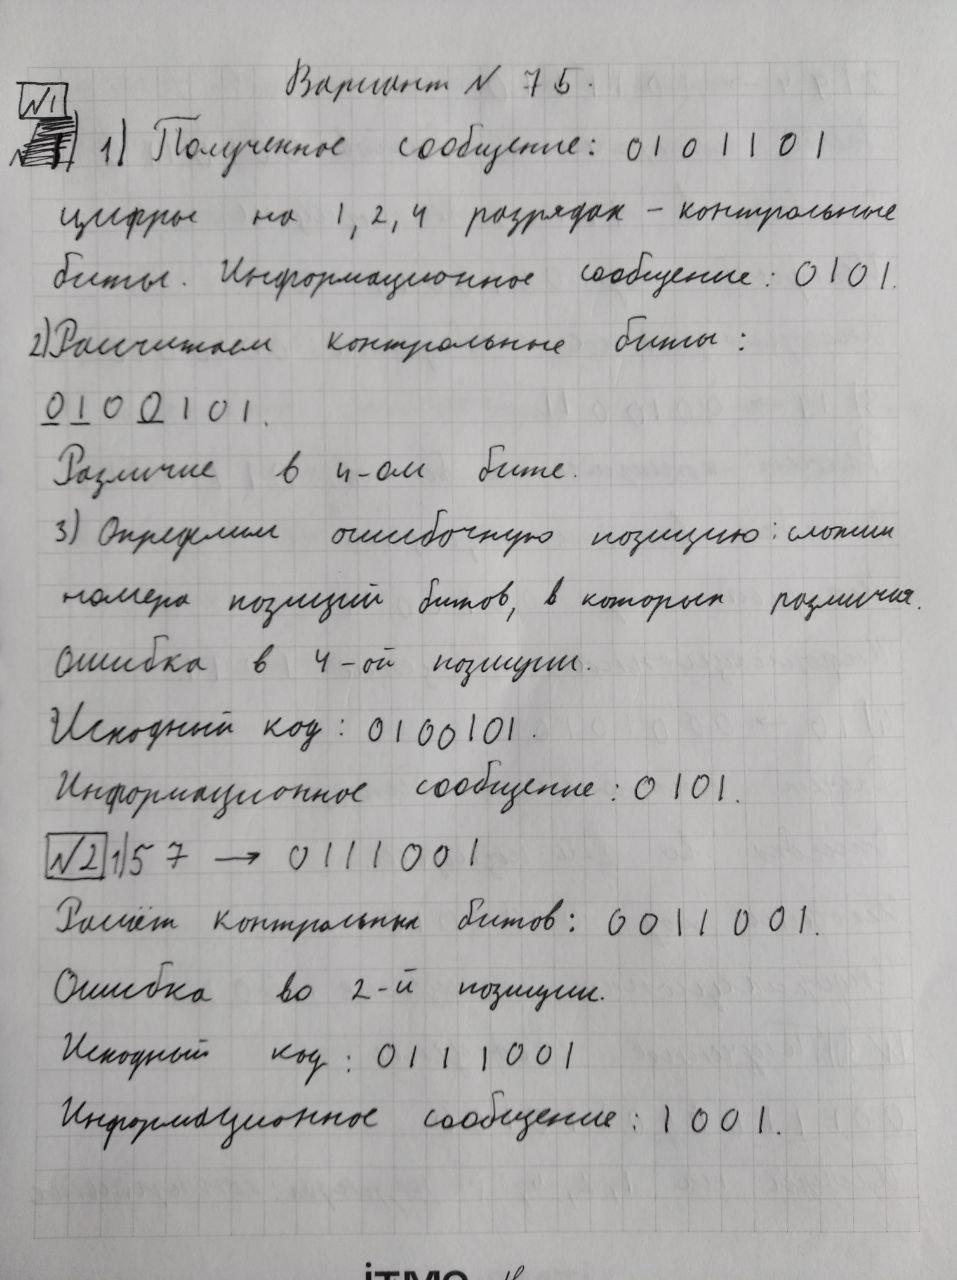 Вариант N 75.
N1
1) Полученное сообщение: 0101101
цифры на 1, 2, 4 разрядах - контрольные
биты. Информационное сообщение: 0101.
2) Рассчитаем контрольные биты:
0100101.
Различие в 4-ом бите.
3) Определим ошибочную позицию: сложим
номера позиций битов, в которых различия.
Ошибка в 4-ой позиции.
Исходный код: 0100101.
Информационное сообщение: 0101.
N2 1) 57 → 0111001
Расчёт контрольных битов: 0011001.
Ошибка во 2-й позиции.
Исходный код: 0111001
Информационное сообщение: 1001.
iTMO